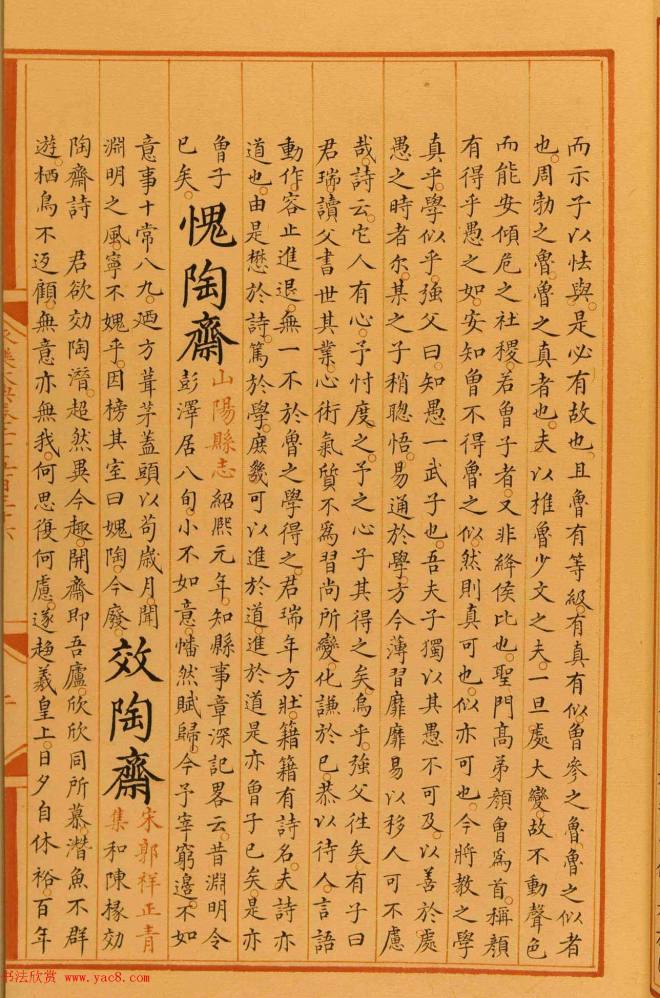 而示子以怯與。是必有故也。且魯有等級。有真有似。曾參之魯。魯之似者
也。周勃之魯。魯之真者也。夫以椎魯少文之夫。一旦處大變。故不動聲色
而能安傾危之社稷。若曾子者。又非絳侯比也。聖門高弟顏曾爲首。稱顏
有得乎愚之如。安知曾不得魯之似。然則真可也。似亦可也。今將教之學
真乎。學似乎。強父曰。知愚一武子也。吾夫子獨以其愚不可及。以善於處
愚之時者尔。某之子稍聰悟。易通於學。方今薄習靡靡易以移人可不慮
哉。詩云。它人有心。予忖度之。予之心子其得之矣。烏乎。強父往矣有子曰
君瑞。讀父書世其業。心術氣質不爲習尚所變。化謙於已。恭以待人。言語
動作。容止進退。無一不於魯之學得之。君瑞年方壯。籍籍有詩名。夫詩亦
道也。由是懋於詩。篤於學。庶幾可以進於道。進於道是亦曾子已矣。是亦
曾子
已矣。
愧陶齋
山陽縣志 紹熙元年。知縣事章深記畧云。昔淵明令
彭澤居八旬。小不如意。幡然賦歸。今予宰窮邊。不如
意事十常八九。廼方葺茅蓋頭以苟歲月聞
淵明之風。寧不媿乎。因榜其室曰媿陶。今廢。
效陶齋
宋郭祥正青
集 和陳掾効
陶齋詩 君欲効陶潛。超然異今趣。開齋即吾廬。欣欣同所慕。潛魚不群
遊。栖鳥不返顧。無意亦無我。何思復何慮。遂趍羲皇上。日夕自休裕。百年
书法欣赏 www.yac8.com